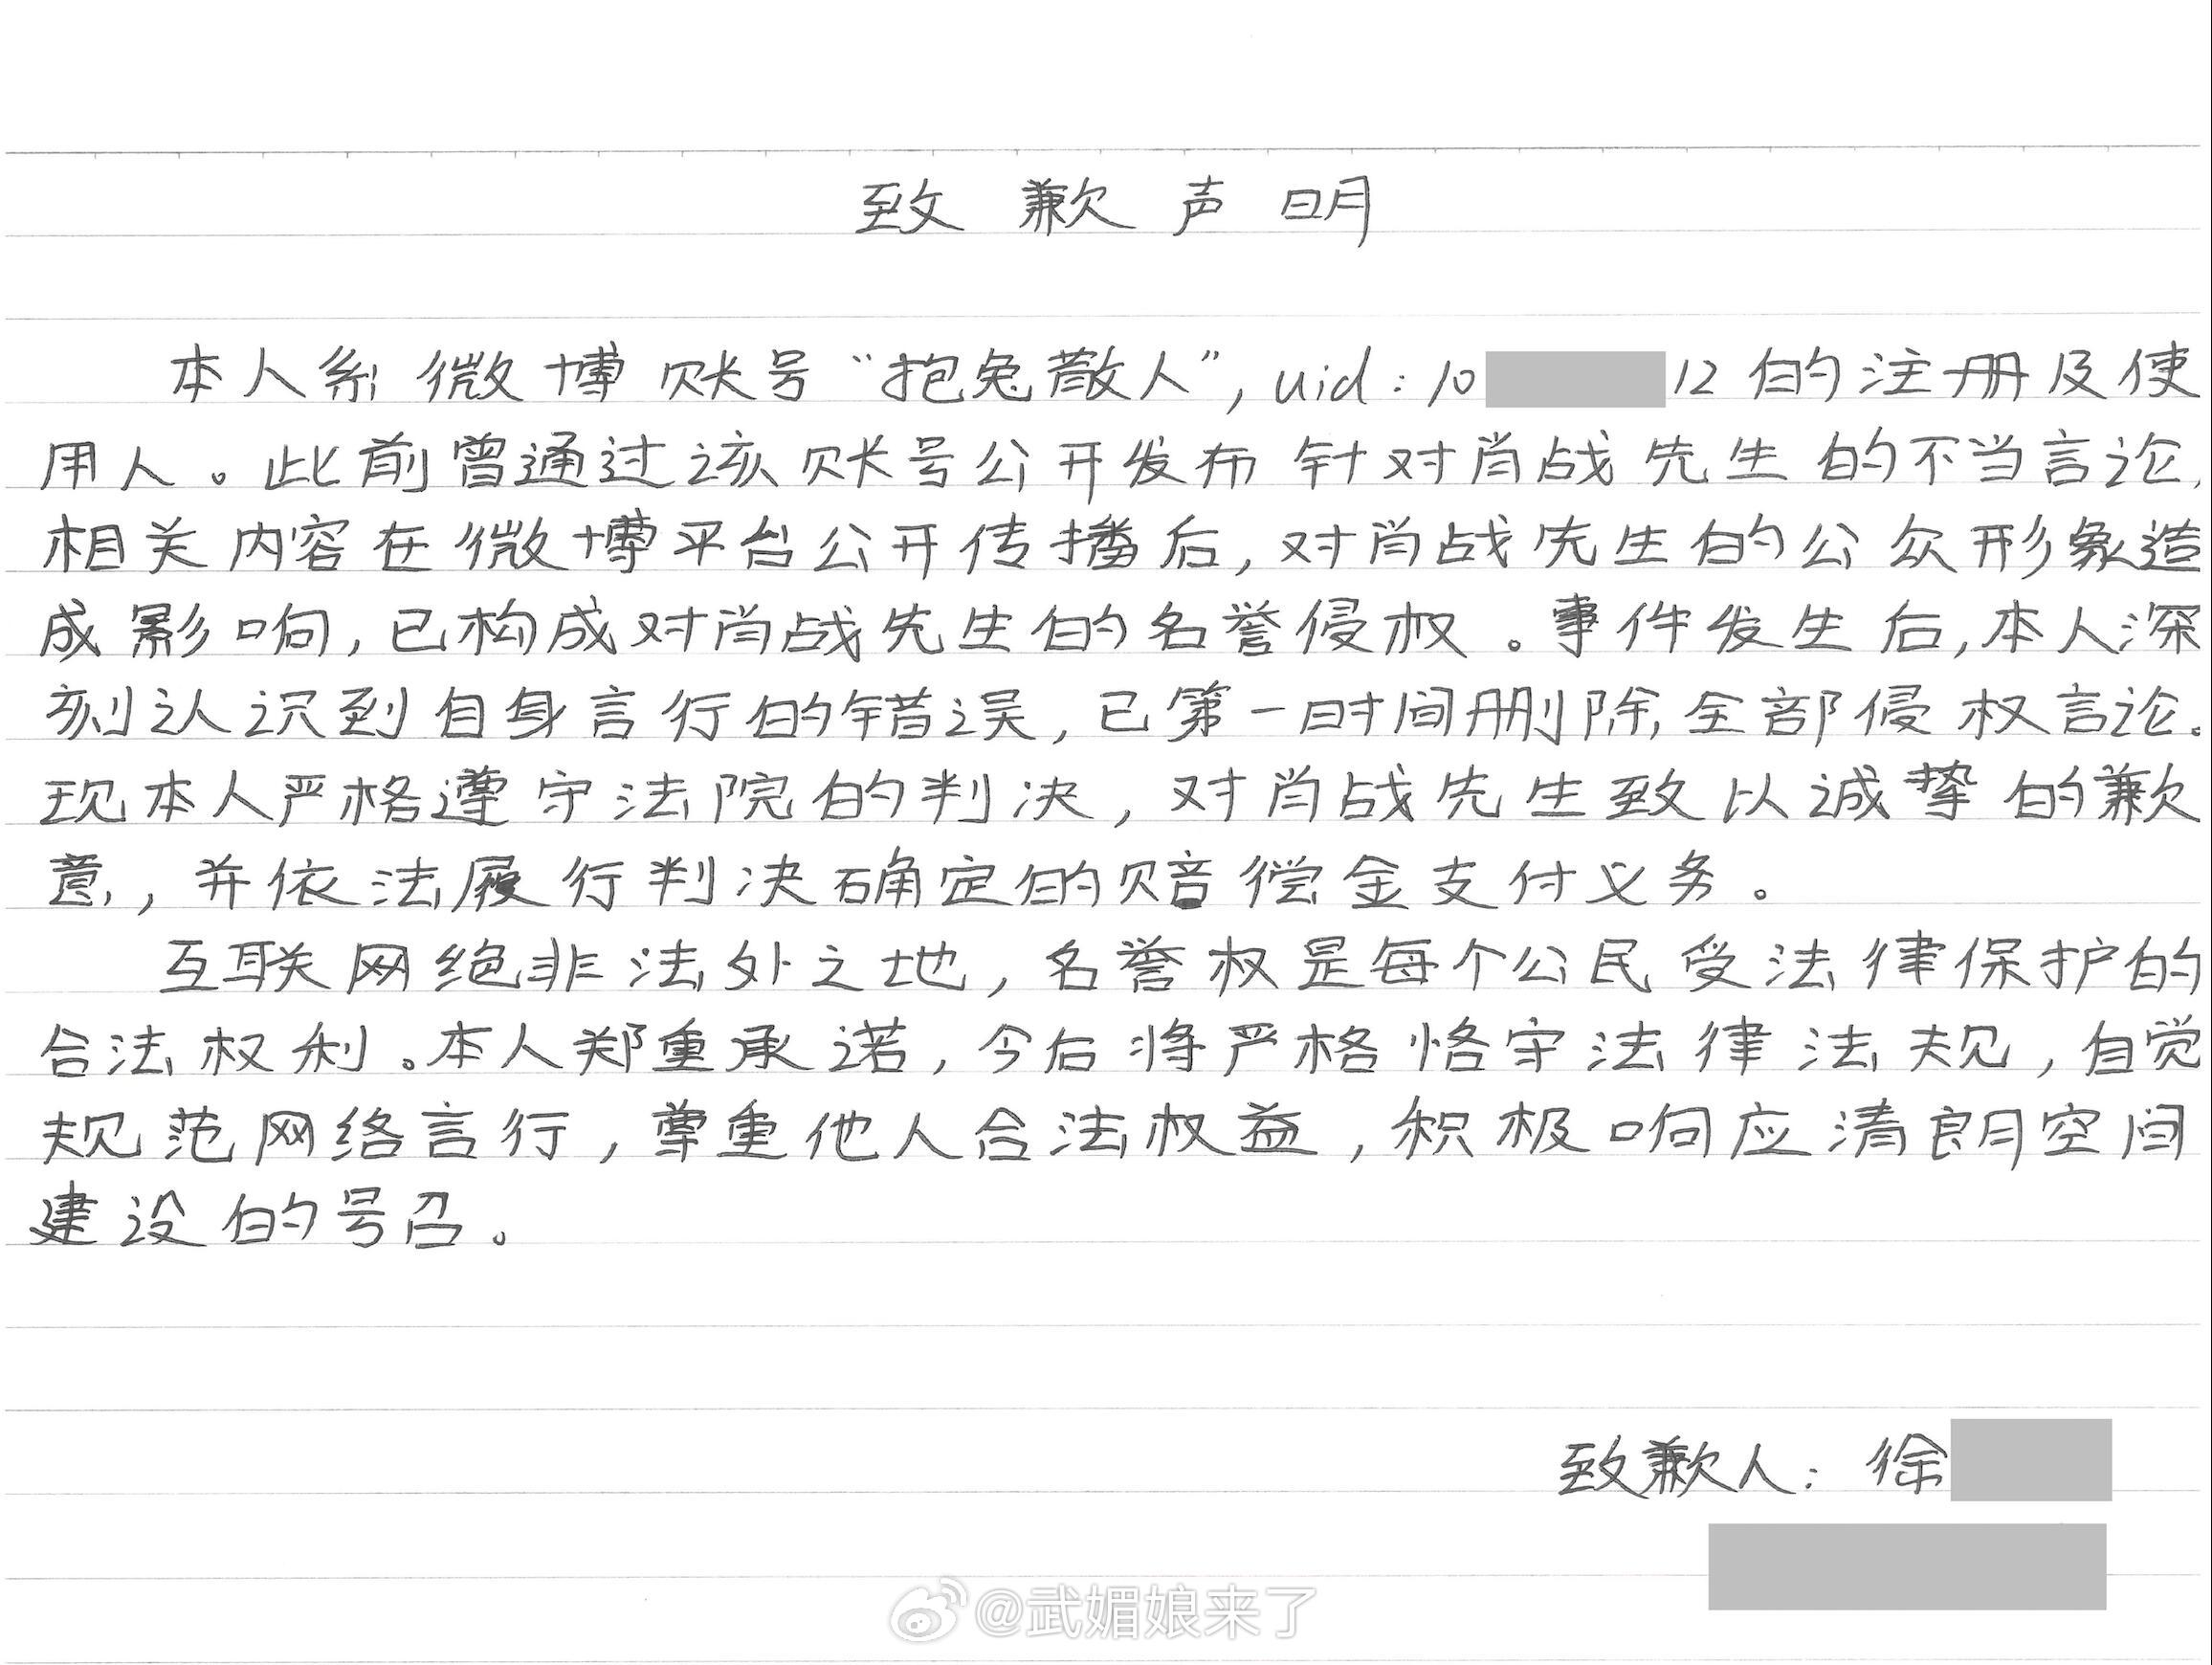 致歉声明
本人系微博账号“抱兔散人”，uid：10 12的注册及使
用人。此前曾通过该账号公开发布针对肖战先生的不当言论，
相关内容在微博平台公开传播后，对肖战先生的公众形象造
成影响，已构成对肖战先生的名誉侵权。事件发生后，本人深
刻认识到自身言行的错误，已第一时间删除全部侵权言论。
现本人严格遵守法院的判决，对肖战先生致以诚挚的歉
意，并依法履行判决确定的赔偿金支付义务。
互联网绝非法外之地，名誉权是每个公民受法律保护的
合法权利。本人郑重承诺，今后将严格恪守法律法规，自觉
规范网络言行，尊重他人合法权益，积极响应清朗空间
建设的号召。
致歉人：徐
@武媚娘来了